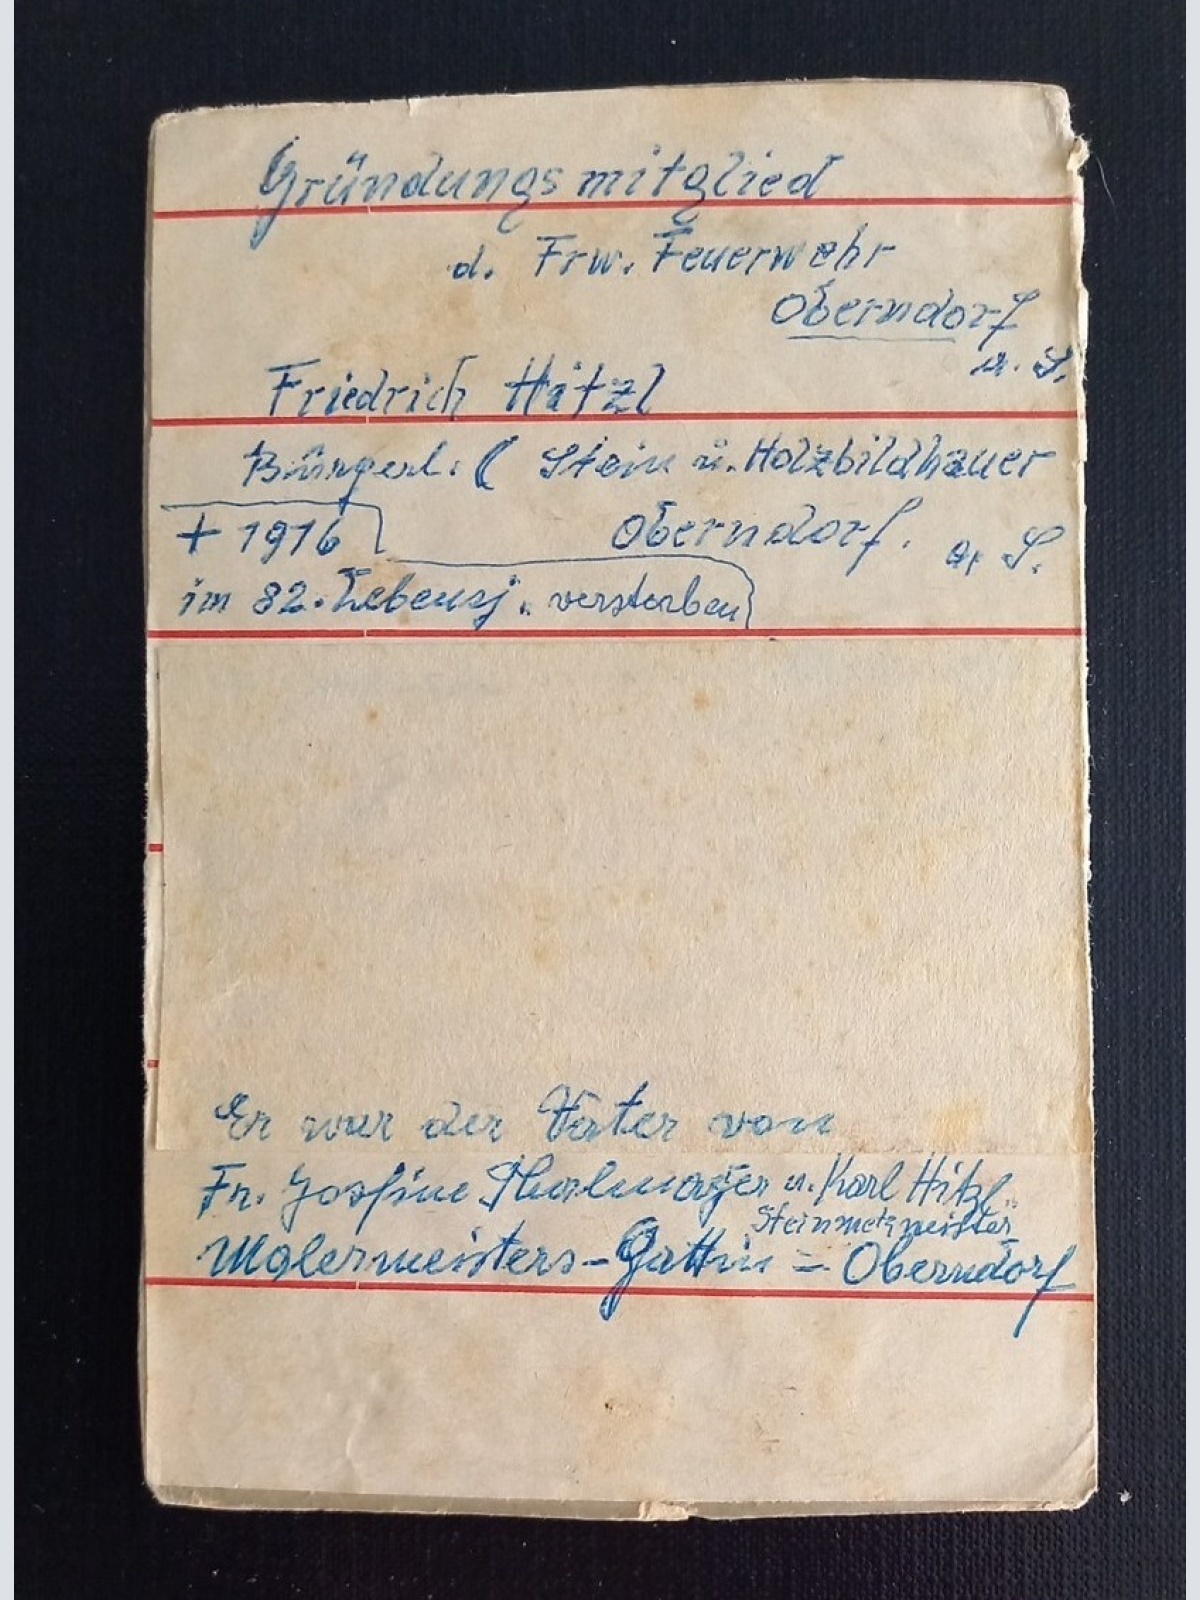 Gründungsmitglied
d. Frw. Feuerwehr
Oberndorf
a. S.
Friedrich Hitzl
Bürgerl. ( Stein u. Holzbildhauer
+ 1916 Oberndorf. a. S.
im 82. Lebensj. verstorben
Er war der Vater von
Fr. Josfine Thalmayer u. Karl Hitzl
Steinmetzmeister
Malermeisters-Gattin = Oberndorf